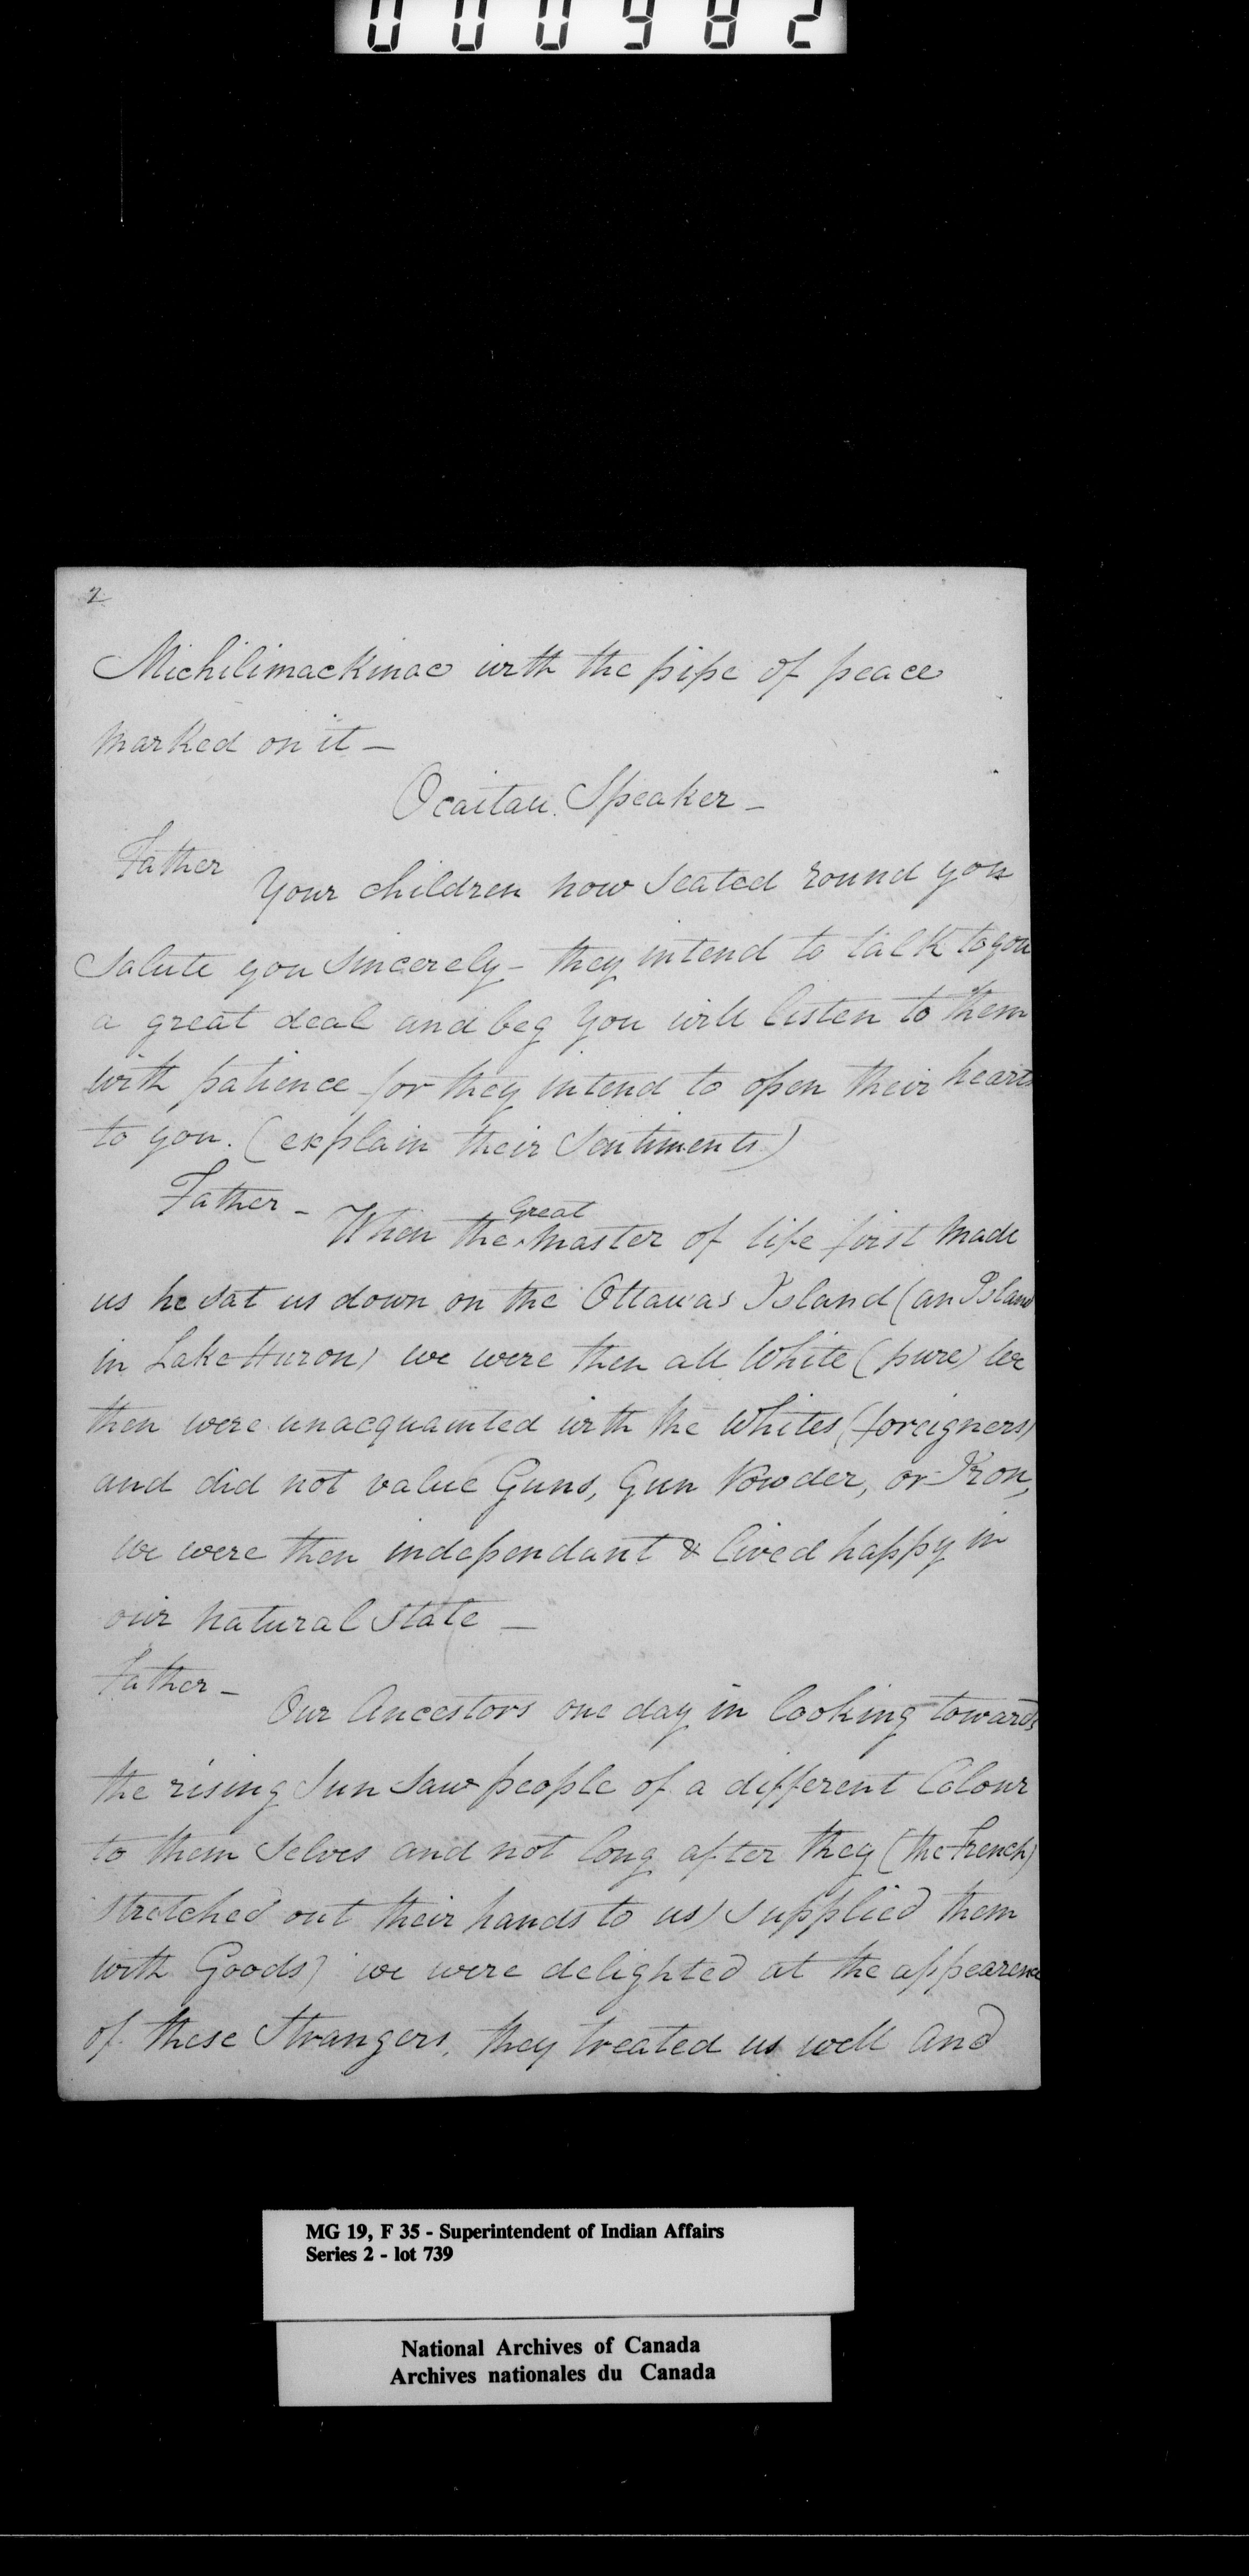 000982
2
Michilimackinac with the pipe of peace
marked on it —
Ocaitau. Speaker —
Father
Your children now seated round you
Salute you Sincerely — they intend to talk to you
a great deal and beg you will listen to them
with patience for they intend to open their hearts
to you. (explain their Sentiments)
Father —
Great
When the ^ Master of life first made
us he sat us down on the Ottawas Island (an Island
in Lake Huron) we were then all White (pure) we
then were unacquainted with the Whites (foreigners)
and did not value Guns, Gun Powder, or Iron,
we were then independant & lived happy in
our natural state —
Father —
Our Ancestors one day in looking towards
the rising Sun Saw people of a different Colour
to them Selves and not long after they (the French)
stretched out their hands to us) supplied them
with Goods) we were delighted at the appearence
of these Strangers, they treated us well and
MG 19, F 35 - Superintendent of Indian Affairs
Series 2 - lot 739
National Archives of Canada
Archives nationales du Canada